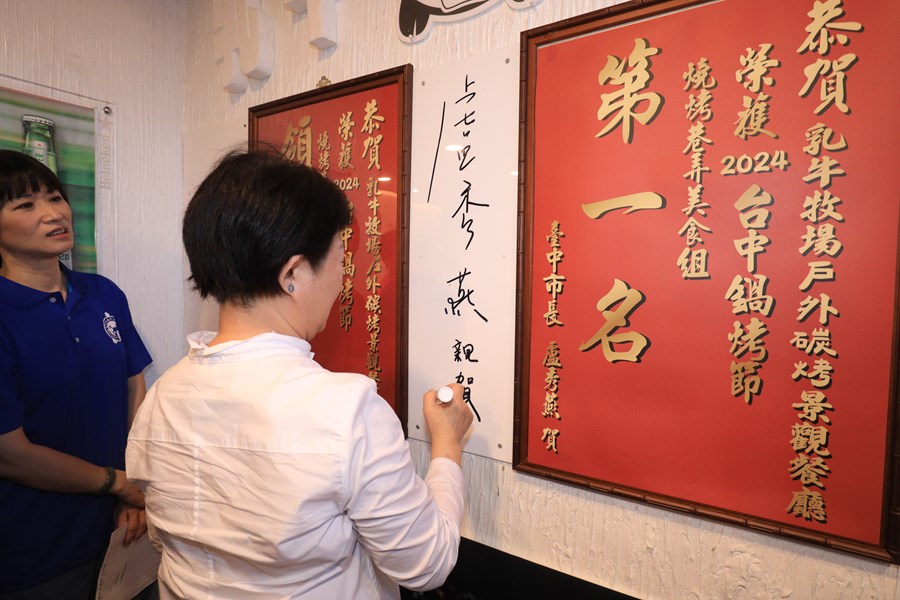 恭賀 乳牛牧場戶外碳烤景觀餐廳
榮獲 2024 台中鍋烤節
燒烤巷弄美食組
第一名
臺中市長 盧秀燕 賀
盧秀燕 親賀
恭賀 乳牛牧場戶外碳烤景觀
榮獲 2024 中鍋烤節
燒烤
領